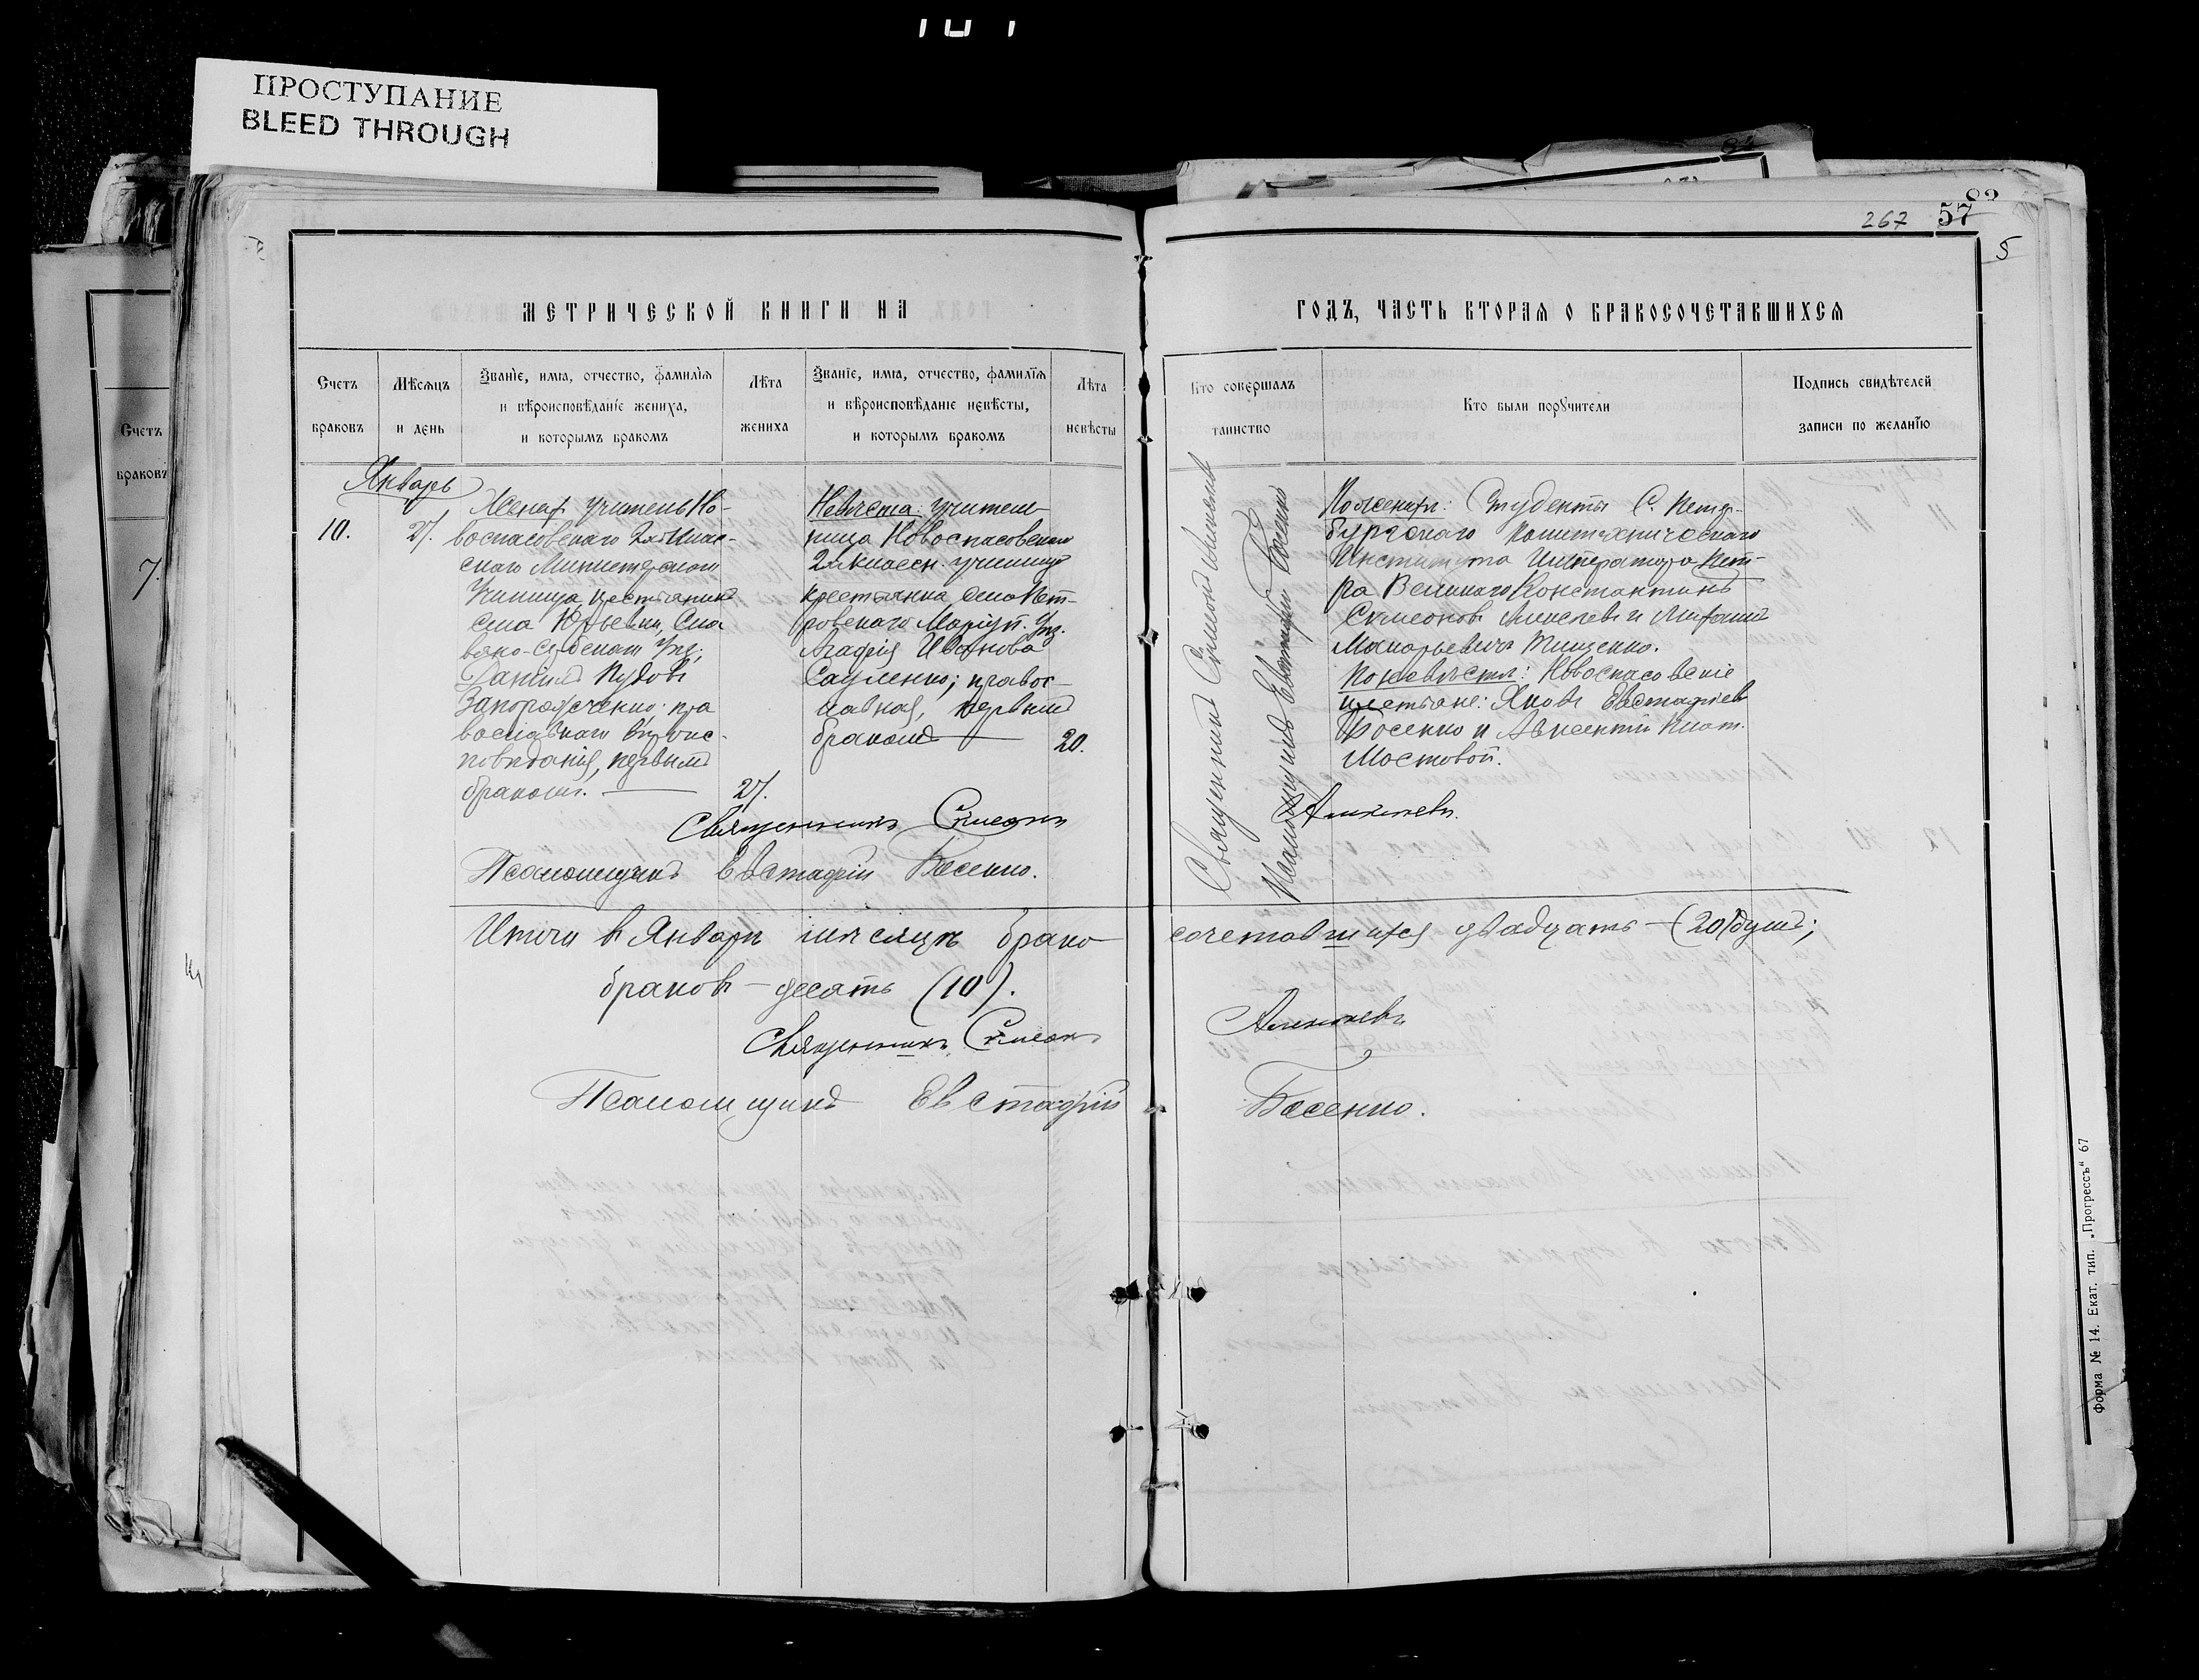 ПРОСТУПАНИЕ
BLEED THROUGH
267 57
5
МЕТРИЧЕСКОЙ КНИГИ НА
ГОДЪ, ЧАСТЬ ВТОРАЯ О БРАКОСОЧЕТАВШИХСЯ
Счетъ браковъ
Мѣсяцъ и день
Званіе, имя, отчество, фамилія
и вѣроисповѣданіе жениха,
и которымъ бракомъ
Лѣта жениха
Званіе, имя, отчество, фамилія
и вѣроисповѣданіе невѣсты,
и которымъ бракомъ
Лѣта невѣсты
Кто совершалъ таинство
Кто были поручители
Подпись свидѣтелей
записи по желанію
Счетъ
браковъ
7.
Январь
10.
27.
Жених учитель Но-
воспасовскаго 2хъ клас-
снаго Министерскаго
Училища, крестьянинъ
села Юрьевки, Сла
вяно-Сербскаго Уѣз;
Даніилъ
Запорожченко; пра
вославнаго вѣроис-
повѣданія, первымъ
бракомъ.
27.
Невѣста учитель-
ница Новоспасовскаго
2хъ классн. училища
крестьянка села Пет-
ровскаго Маріуп. Уѣз.
Агафія Иванова
Сауленко; правос-
лавная, первымъ
бракомъ
20.
Священникъ Симеонъ Алексѣевъ
Псаломщикъ Евстафій Босенко
По женихѣ: Студенты С. Петер-
бургскаго Политехническаго
Института Императора Пет-
ра Великаго Константинъ
Симеоновъ Алексѣевъ и
Макарьевичъ Тищенко.
По невѣстѣ: Новоспасовскіе
крестьяне: Яковъ Евстафіевъ
Босенко и Авксентій
Мостовой.
Священникъ Симеонъ Алексѣевъ.
Псаломщикъ Евстафій Босенко.
Итого въ Январѣ мѣсяцѣ брако сочетавшихся двадцать (20) душъ;
браковъ - десять (10).
Священникъ Симеонъ Алексѣевъ
Псаломщикъ Евстафій Босенко.
Форма № 14. Екат. тип. „Прогрессъ“ 67